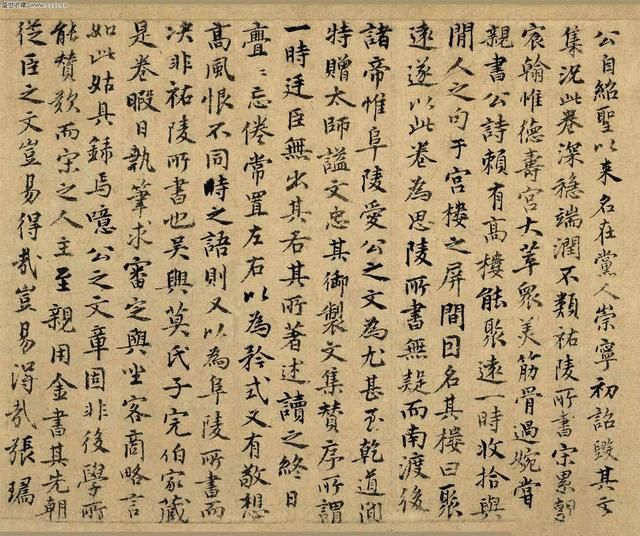 公自紹聖以來名在黨人崇寧初詔毀其文
集況此卷深穩端潤不類祐陵所書宗累朝
宸翰惟德壽宮大萃眾美筋骨過婉嘗
親書公詩賴有高樓能聚遠一時收拾與
閒人之句于宮樓之屏間因名其樓曰聚
遠遂以此卷為思陵所書無疑而南渡後
諸帝惟阜陵愛公之文為尤甚至乾道間
特贈太師謚文忠其御製文集贊序所謂
一時廷臣無出其右其所著述讀之終日
亹〻忘倦常置左右以為矜式又有敬想
高風恨不同時之語則又以為阜陵所書而
决非祐陵所書也吳興莫氏子完伯家藏
是卷暇日執筆求審定與坐客商略言
如此姑具錄焉噫公之文章固非後學所
能贊歎而宋之人主至親用金書其先朝
從臣之文豈易得哉豈易得哉張